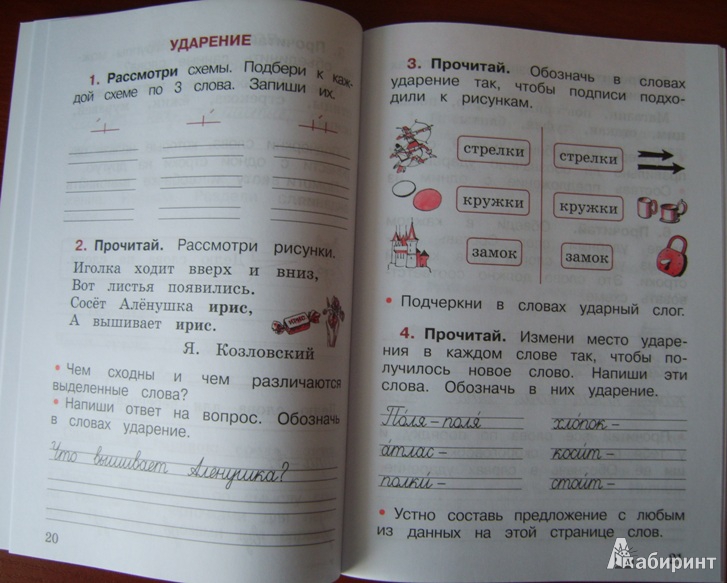 УДАРЕНИЕ
1. Рассмотри схемы. Подбери к каж-
дой схеме по 3 слова. Запиши их.
2. Прочитай. Рассмотри рисунки.
Иголка ходит вверх и вниз,
Вот листья появились.
Сосёт Алёнушка ирис,
А вышивает ирис.
Я. Козловский
• Чем сходны и чем различаются
выделенные слова?
• Напиши ответ на вопрос. Обозначь
в словах ударение.
Что вышивает Алёнушка?
20
3. Прочитай. Обозначь в словах
ударение так, чтобы подписи подхо-
дили к рисункам.
стрелки стрелки
кружки кружки
замок замок
• Подчеркни в словах ударный слог.
4. Прочитай. Измени место ударе-
ния в каждом слове так, чтобы по-
лучилось новое слово. Напиши эти
слова. Обозначь в них ударение.
По́ля – поля́ хло́пок –
а́тлас – коси́т –
полки́ – стои́т –
• Устно составь предложение с любым
из данных на этой странице слов.
Лабиринт